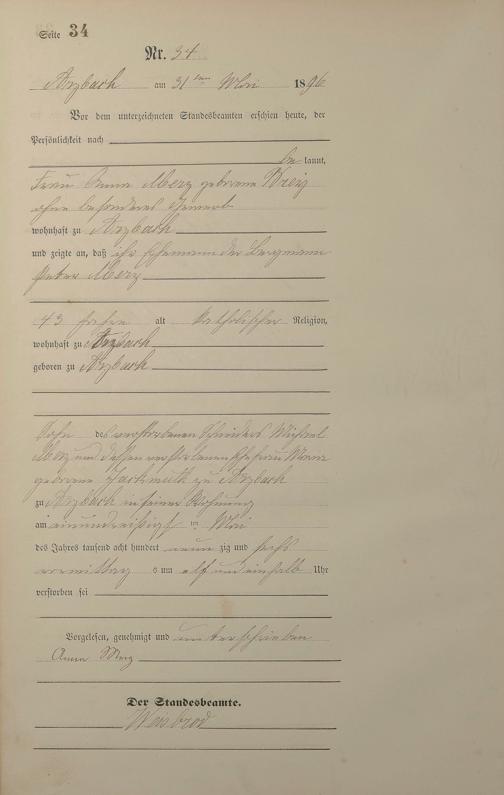 Seite 34
Nr. 34
Arzbach am 31 ten Mai 1896
Vor dem unterzeichneten Standesbeamten erschien heute, der
Persönlichkeit nach
be kannt,
Frau Anna Merz geborene
ohne besonderes Gewerb
wohnhaft zu Arzbach
und zeigte an, daß ihr Ehemann der Bergmann
Peter Merz
43 Jahre alt katholischer Religion,
wohnhaft zu Arzbach
geboren zu Arzbach
Sohn des verstorbenen Schneiders Michael
Merz und dessen verstorbenen Ehefrau
geborene zu Arzbach
zu Arzbach in seiner Wohnung
am einunddreißigs ten Mai
des Jahres tausend acht hundert neun zig und sechs
vormittag s um elf und einhalb Uhr
verstorben sei
Vorgelesen, genehmigt und unterschrieben
Anna Merz
Der Standesbeamte.